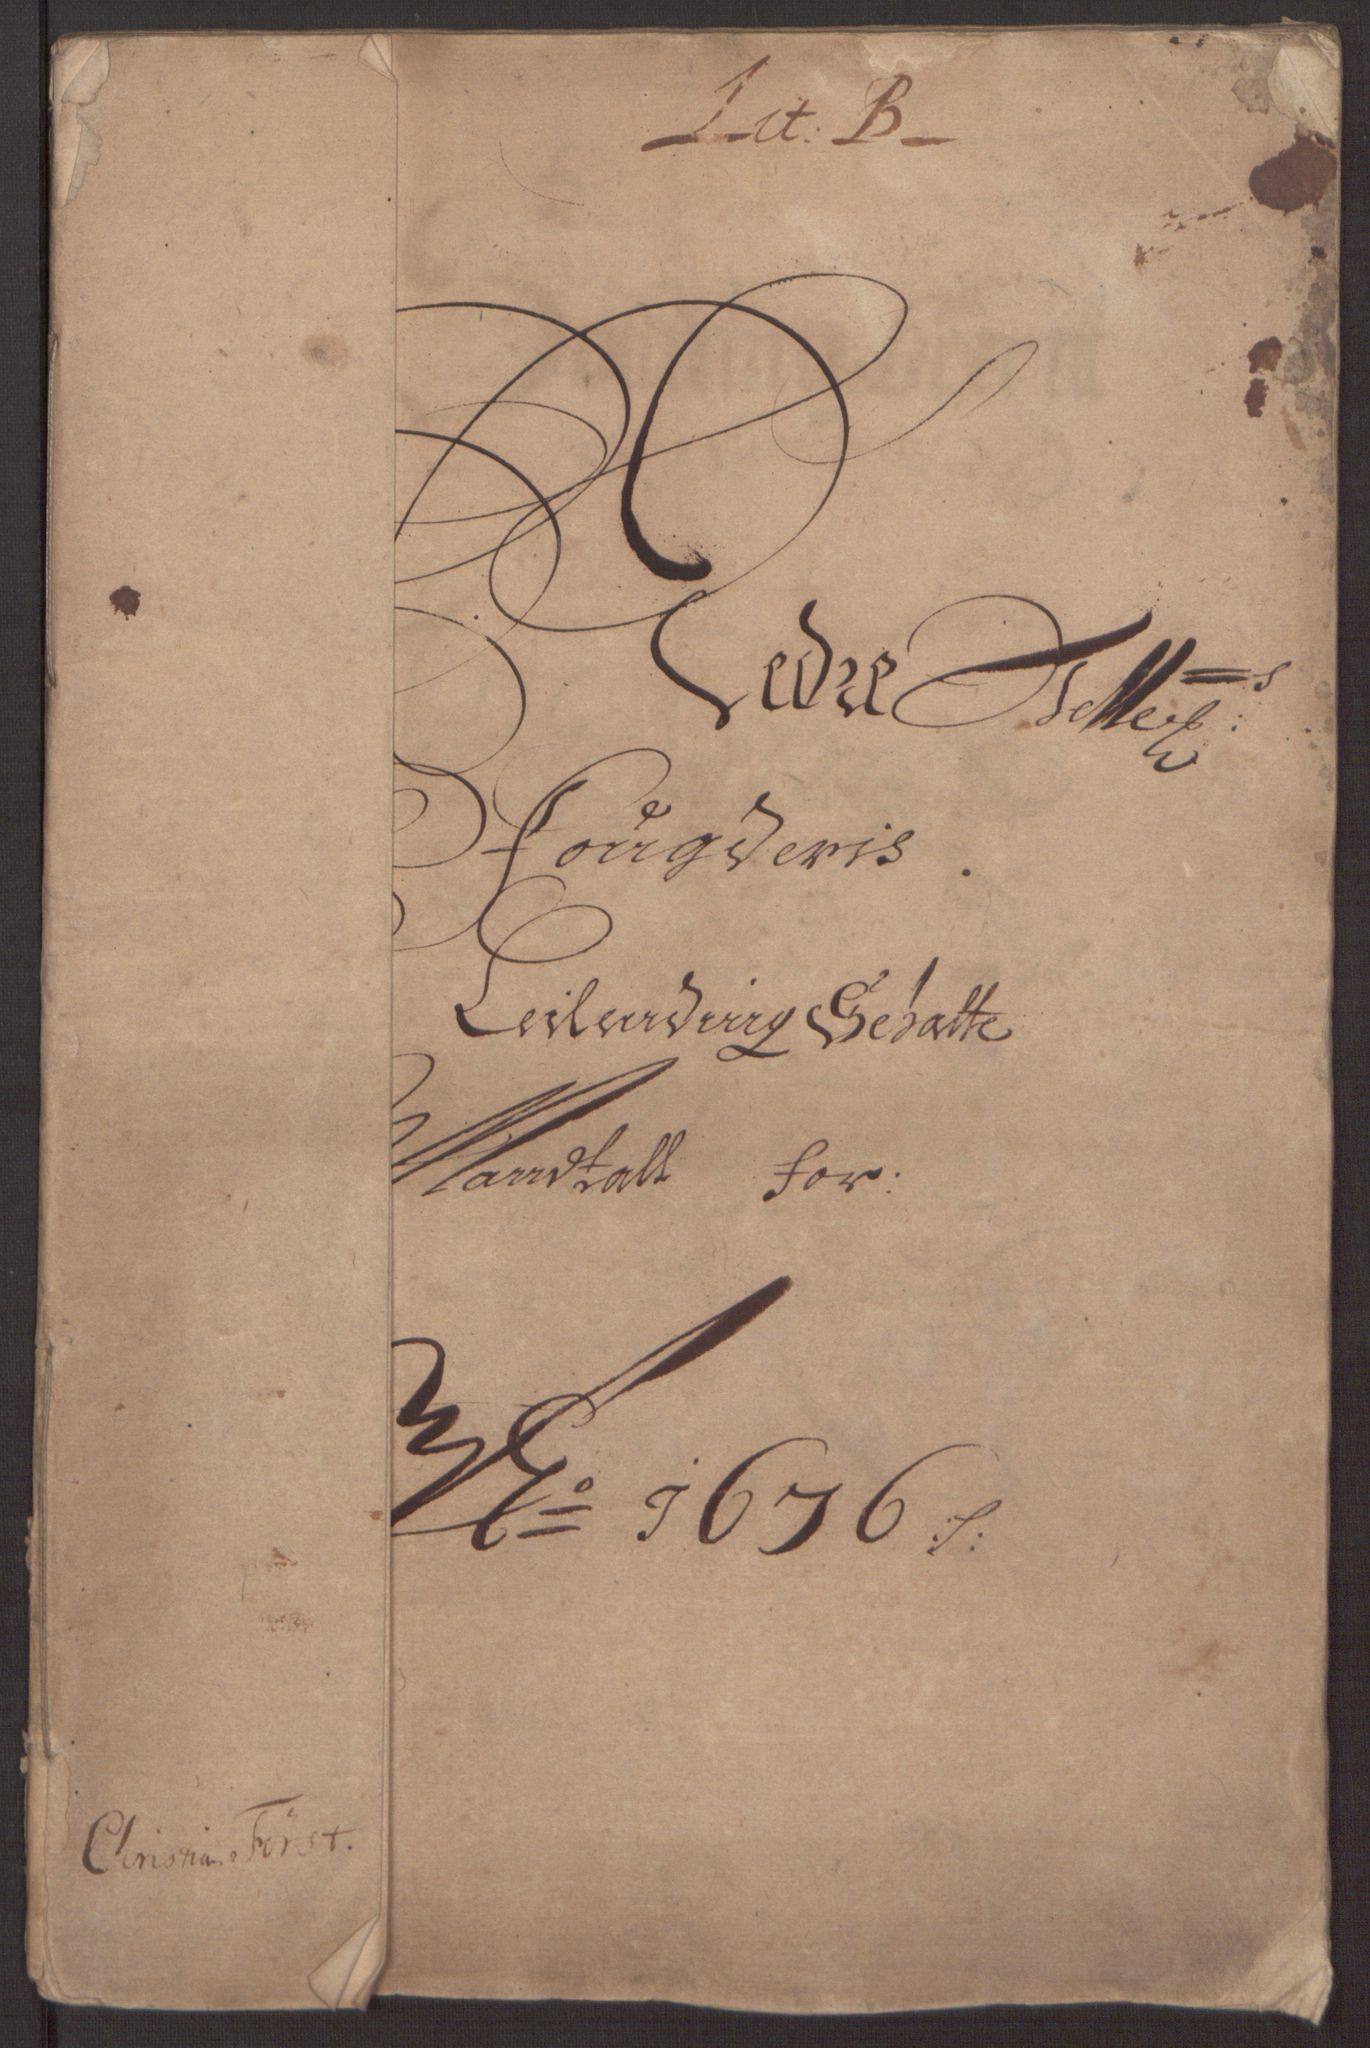 Lit: B
Nedre Tellem:s
fougderis
Leilending Schatte
Mandtall for:
Ao 1676 :/:
Christian Först.